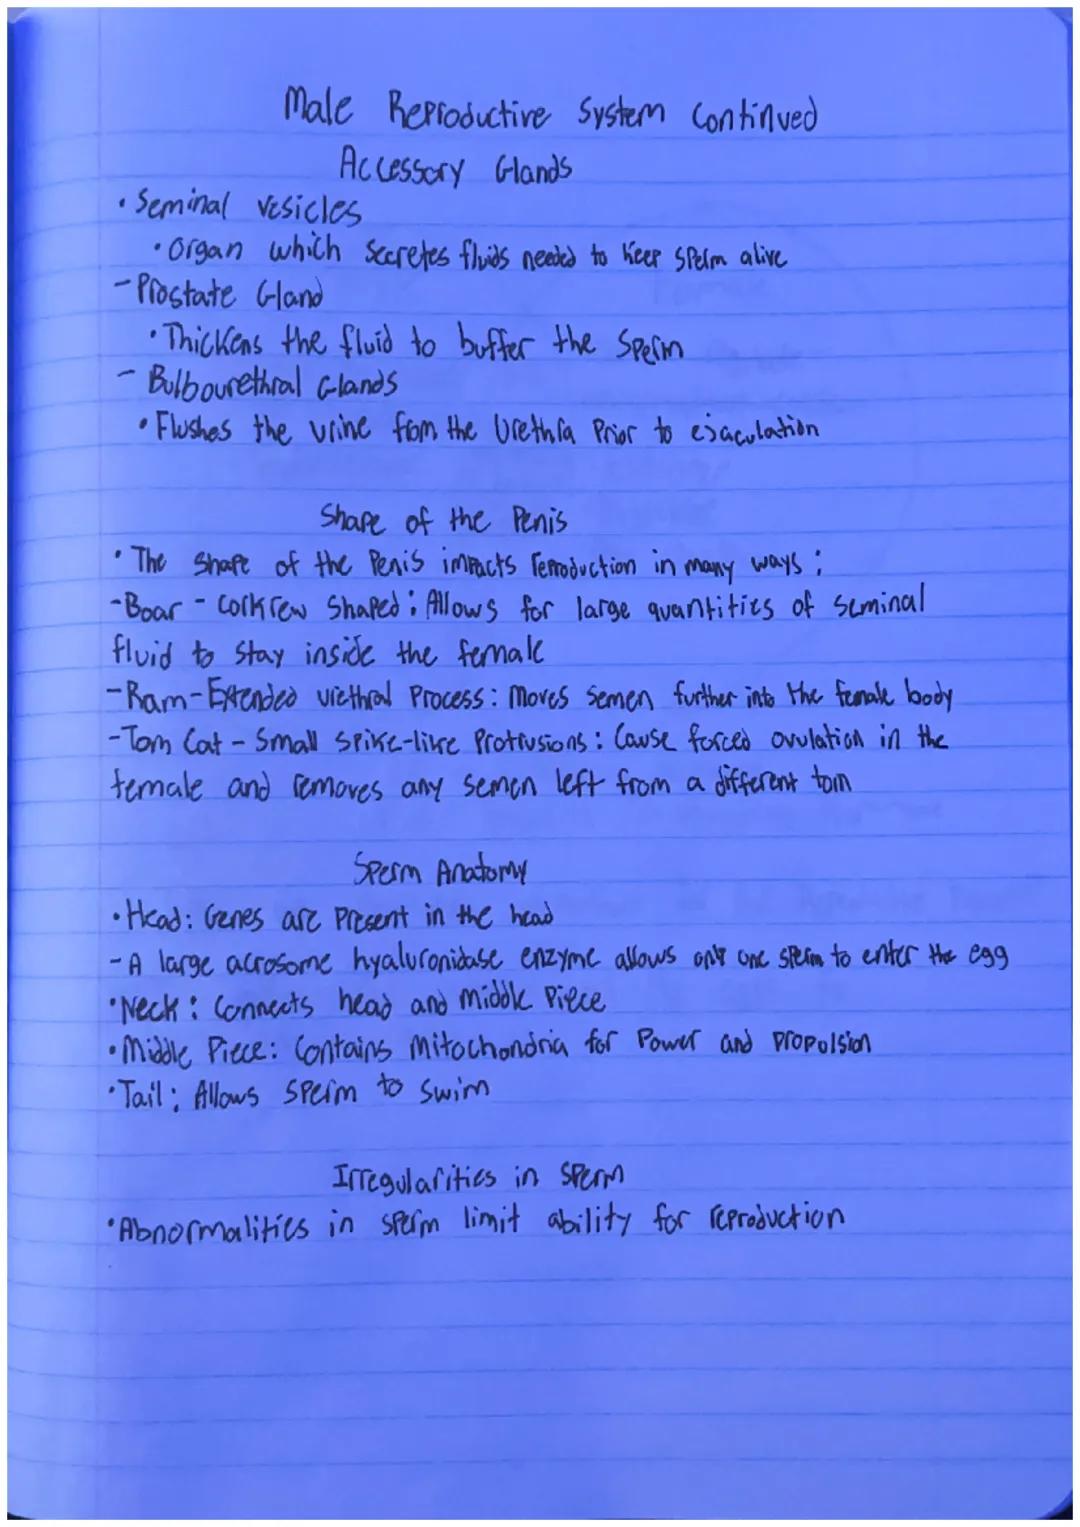 Male Reproductive System Continued
Accessory Glands
• Seminal vesicles
• Organ which secretes fluids needed to keep sperm alive
- Prostate Gland
• Thickens the fluid to buffer the sperm
- Bulbourethral Glands
• Flushes the urine from the Urethra Prior to ejaculation
Shape of the Penis
• The shape of the Penis impacts reproduction in many ways:
- Boar - Corkrew Shaped: Allows for large quantities of seminal
fluid to stay inside the female
- Ram - Extended urethral Process: Moves semen further into the female body
- Tom Cat - Small spike-like Protrusions: Cause forced ovulation in the
female and removes any semen left from a different tom
Sperm Anatomy
• Head: Genes are Present in the head
- A large acrosome hyaluronidase enzyme allows only one sperm to enter the egg
• Neck: Connects head and middle Piece
• Middle Piece: Contains Mitochondria for Power and propulsion
• Tail: Allows sperm to swim
Irregularities in sperm
• Abnormalities in sperm limit ability for reproduction